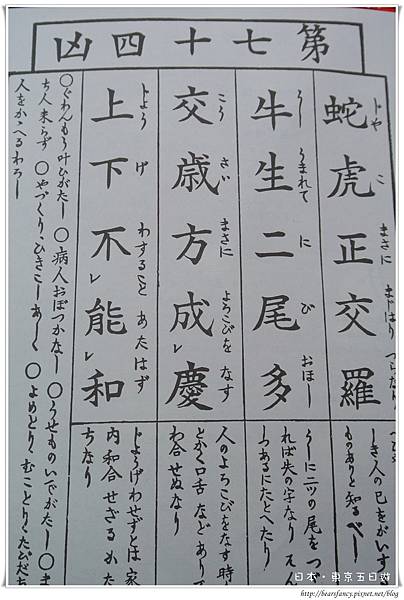 第七十四凶
蛇虎正交羅
じや こ まさに まじはり つらなり
しき人の己をがいす
ものありと知るべし
牛生二尾多
うし うまれて に び おほし
うしに二ツの尾をつ
れば失の字なり
つあるにたとへたり
交歳方成慶
こう さい まさに よろこびを なす
人のよろこびをなす時
とかく口舌などありて
わ合せぬなり
上下不能和
じよう げ わすること あたはず
じようげわせずとは家
内和合せざる
ちなり
○ぐわんもう叶ひがたし ○病人おぼつかなし ○うせものいでがたし ○ま
ち人来らず ○やづくり、ひきこしあしく ○よめとり、むことりたびだち
人をかゝへるわろし
日本・東京五日遊
http://bearsfancy.pixnet.net/blog